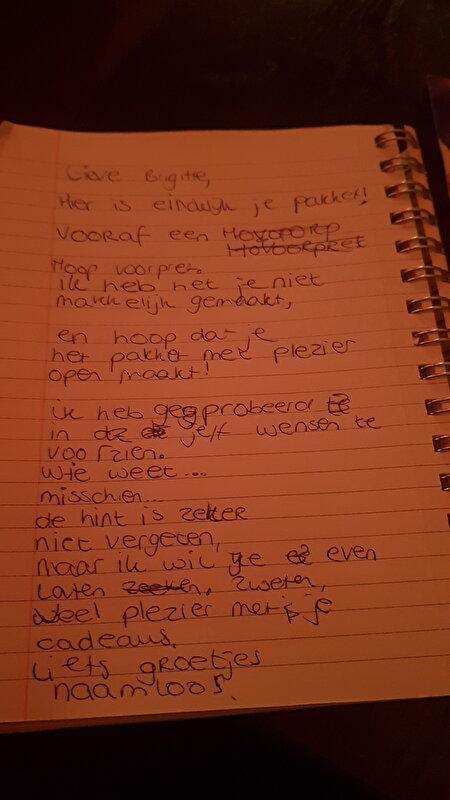 Lieve Brigitte,
Hier is eindelijk je pakket!
vooraf een
Hoop voorpret.
ik heb het je niet
makkelijk gemaakt,
en hoop dat je
het pakket met plezier
open maakt!
ik heb geprobeerd
in de je wensen te
voorzien.
wie weet...
misschien...
de hint is zeker
niet vergeten,
maar ik wil je even
Laten zweten,
veel plezier met je
cadeaus.
Liefs groetjes
naamloos.